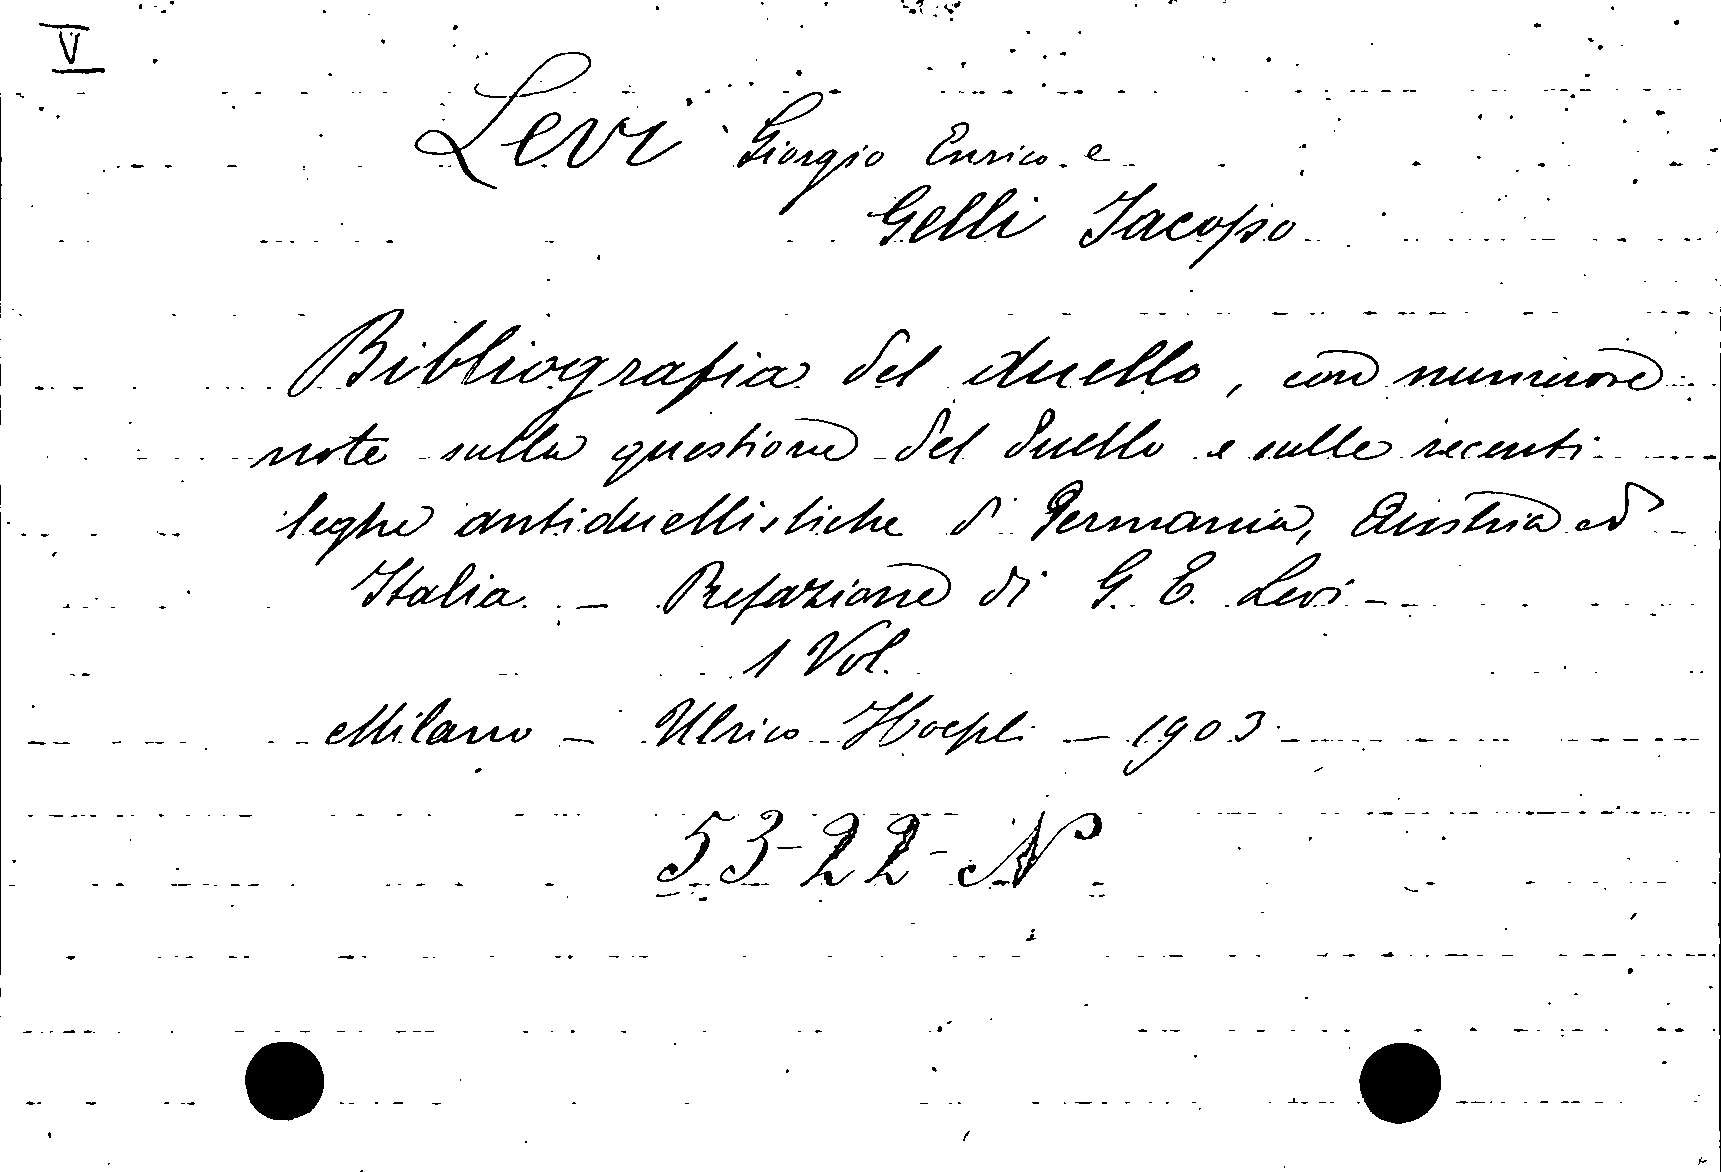 V
Levi Giorgio Enrico e
Gelli Jacopo
Bibliografia del duello, con numerose
note sulla questione del duello e sulle recenti
leghe antiduellistiche di Germania, Austria ed
Italia. - Prefazione di G. E. Levi -
1 Vol.
Milano - Ulrico Hoepli - 1903
53-22-N